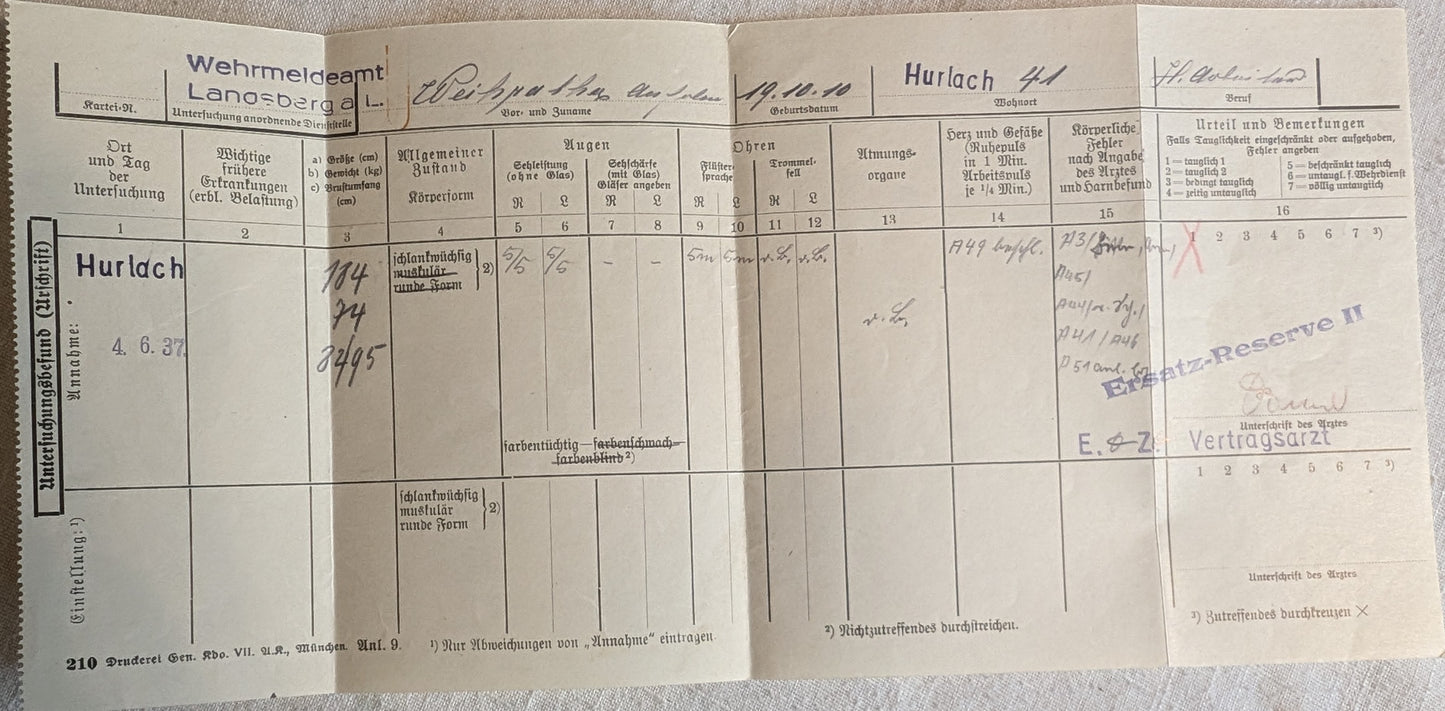 Wehrmeldeamt
Landsberg a L.
Kartei-N.
Untersuchung anordnende Dienststelle
Vor- und Zuname
19.10.10
Geburtsdatum
Hurlach 41
Wohnort
Beruf
Untersuchungsbefund (Urschrift)
Ort und Tag der Untersuchung
Wichtige frühere Erkrankungen (erbl. Belastung)
a) Größe (cm)
b) Gewicht (kg)
c) Brustumfang (cm)
Allgemeiner Zustand
Körperform
Augen
Sehleistung (ohne Glas)
R L
Sehschärfe (mit Glas) Gläser angeben
R L
Ohren
Flüstersprache
R L
Trommelfell
R L
Atmungsorgane
Herz und Gefäße (Ruhepuls in 1 Min. Arbeitspuls je 1/4 Min.)
Körperliche Fehler nach Angabe des Arztes und Harnbefund
Urteil und Bemerkungen
Falls Tauglichkeit eingeschränkt oder aufgehoben, Fehler angeben
1 = tauglich 1
2 = tauglich 2
3 = bedingt tauglich
4 = zeitig untauglich
5 = beschränkt tauglich
6 = untaugl. f. Wehrdienst
7 = völlig untauglich
1 2 3 4 5 6 7 8 9 10 11 12 13 14 15 16
Annahme:
Hurlach
4. 6. 37.
184
74
82/95
schlankwüchsig
muskulär
runde Form
2)
5/5 5/5 - - 5m 5m o.B. o.B.
farbentüchtig — farbenschwach —
farbenblind 2)
o.B.
A49
A3/
A45/
A41/A46
1 2 3 4 5 6 7 3)
Ersatz-Reserve II
Unterschrift des Arztes
E. Z. Vertragsarzt
Einstellung: 1)
schlankwüchsig
muskulär
runde Form
2)
1 2 3 4 5 6 7 3)
Unterschrift des Arztes
210 Druckerei Gen. Kdo. VII. A.K., München. Anl. 9.
1) Nur Abweichungen von „Annahme" eintragen.
2) Nichtzutreffendes durchstreichen.
3) Zutreffendes durchkreuzen ×